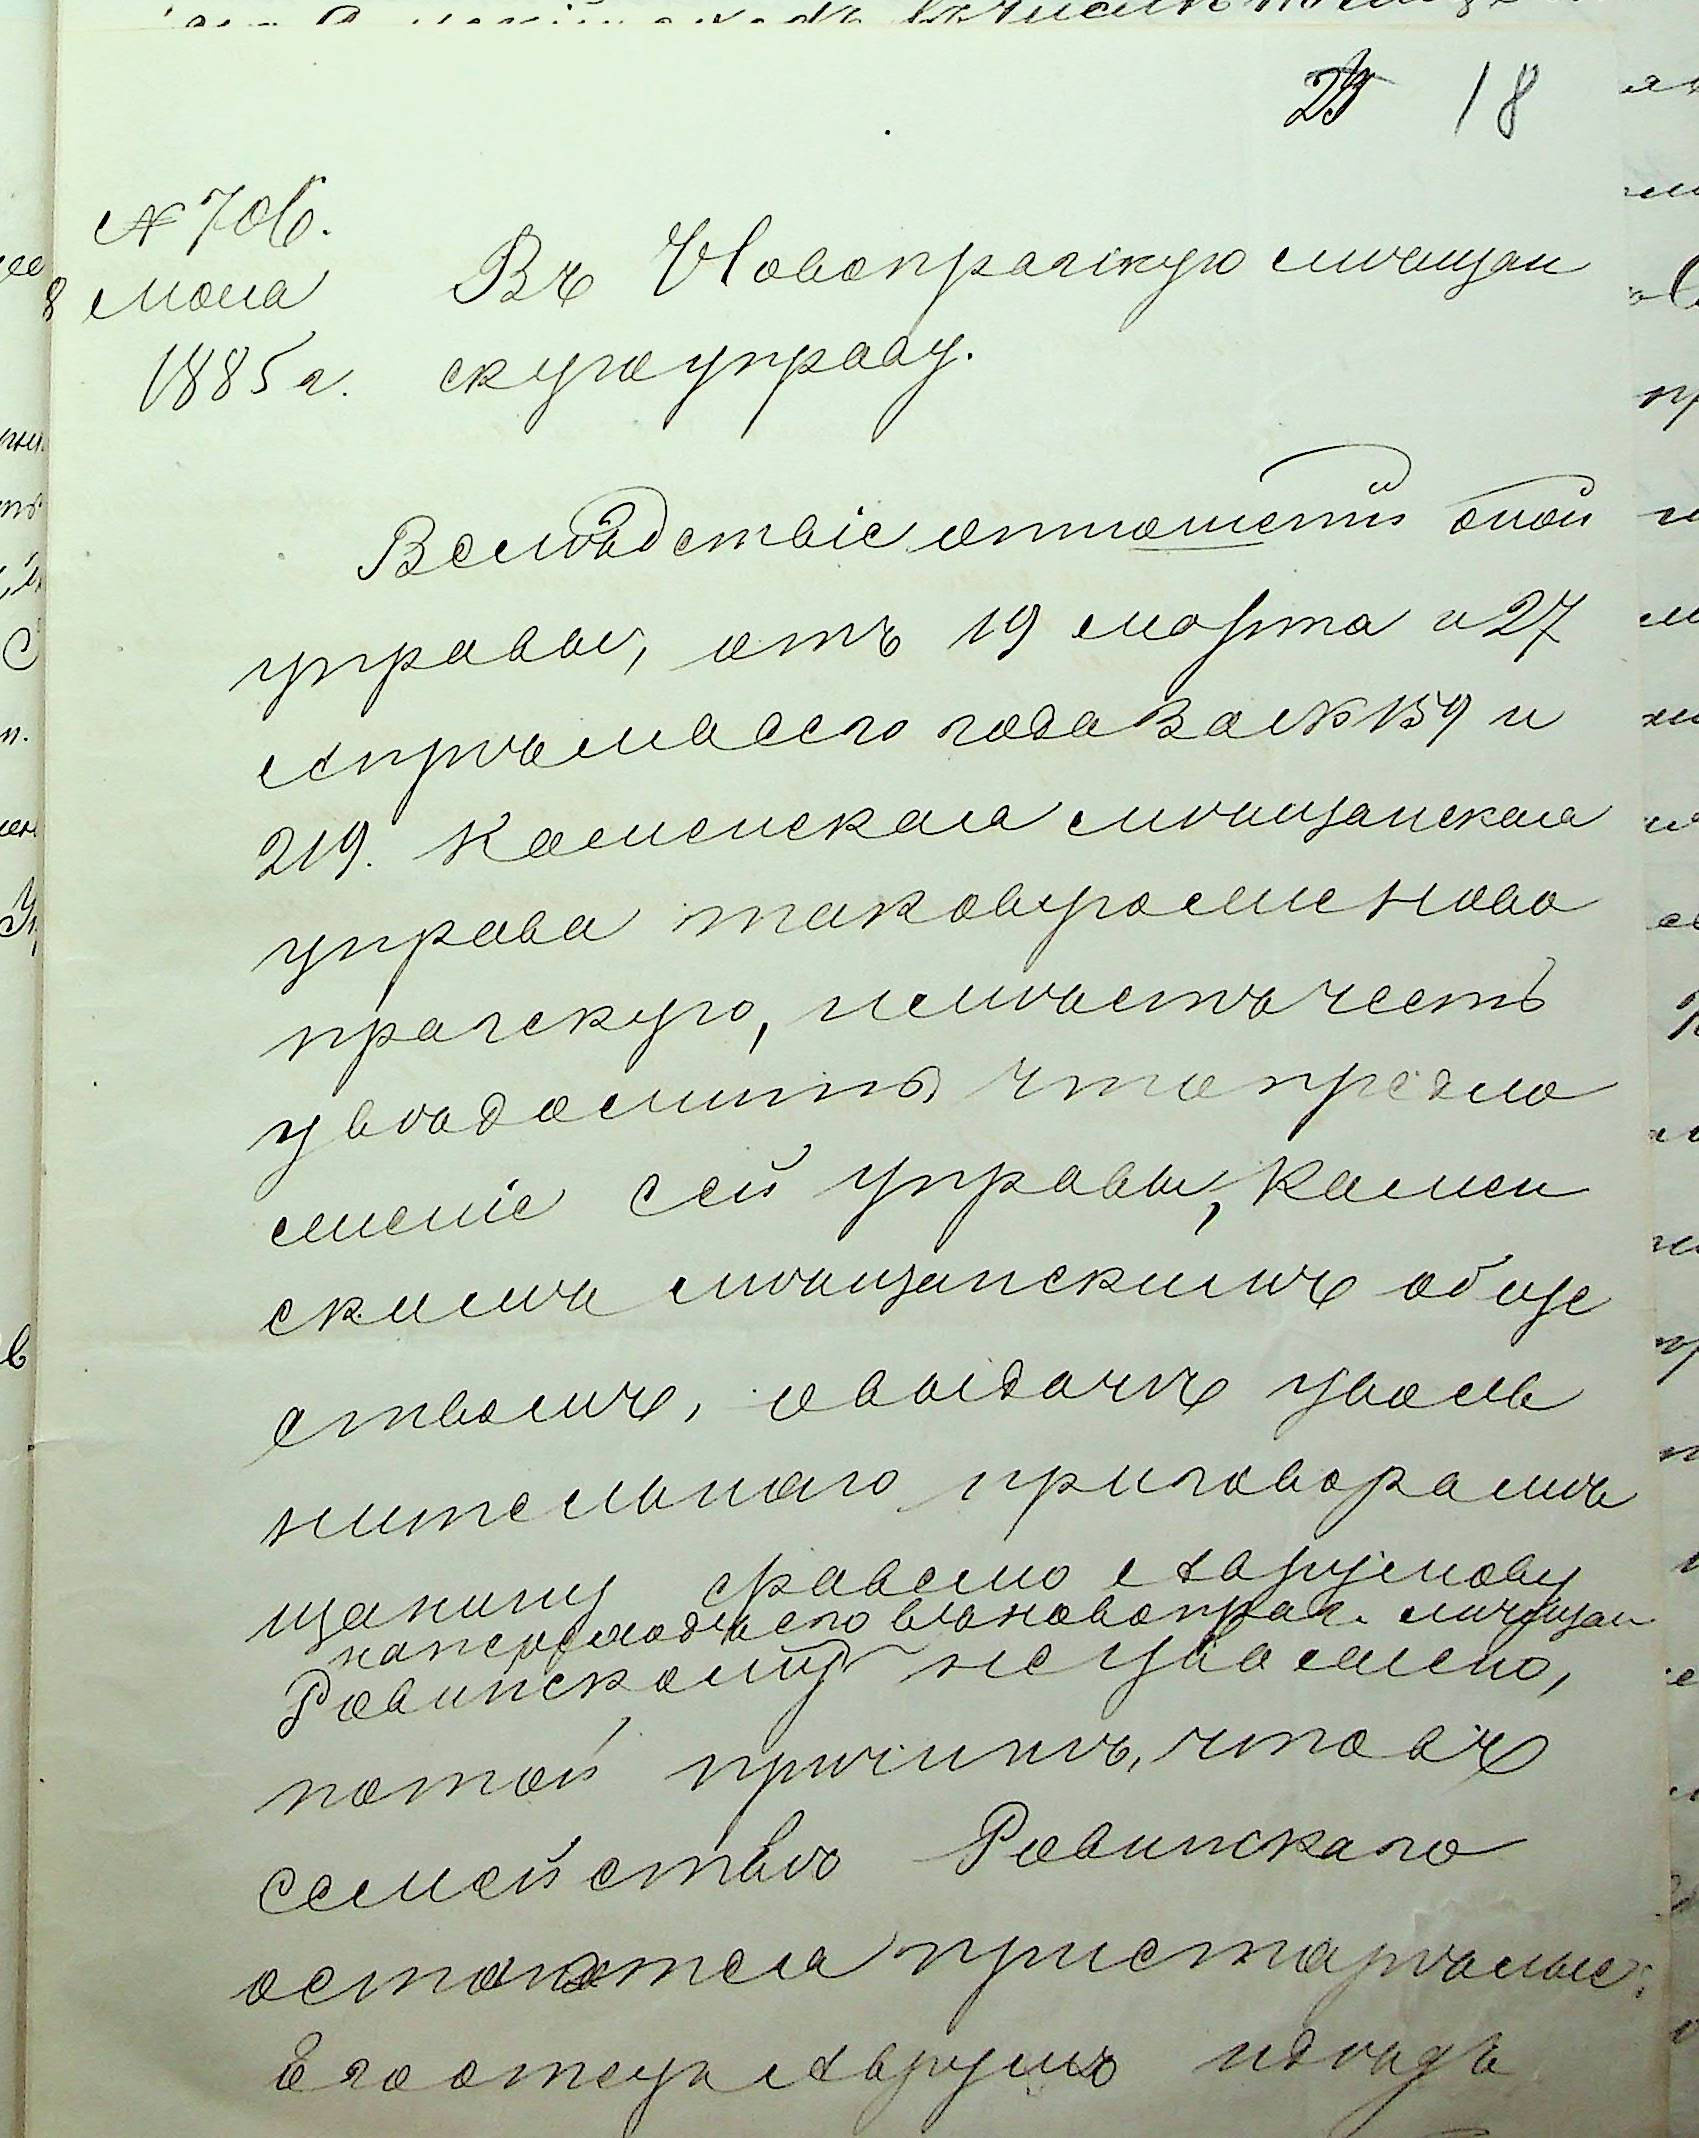 18
№ 706.
8 мая
1885 г.
Въ Новопрагскую мѣщан
скую управу.
Вслѣдствіе отношеній оной
управы, отъ 19 марта и 27
Апрѣля сего года за № 159 и
219. Каменская мѣщанская
управа таковую же Ново
прагскую, имѣетъ честь
увѣдомить что предло
женіе сей управы, Камен
скимъ мѣщанскимъ обще
ствомъ, о выдачѣ уволь
нительнаго приговора мѣ
щанину Сравелю Аврумову
на переходъ его въ новопраг. мѣщан
Ровинскому не уважено,
по той причинѣ, что въ
семействѣ Ровинскаго
остаются престарѣлые:
Его отецъ Аврумъ и дѣдъ